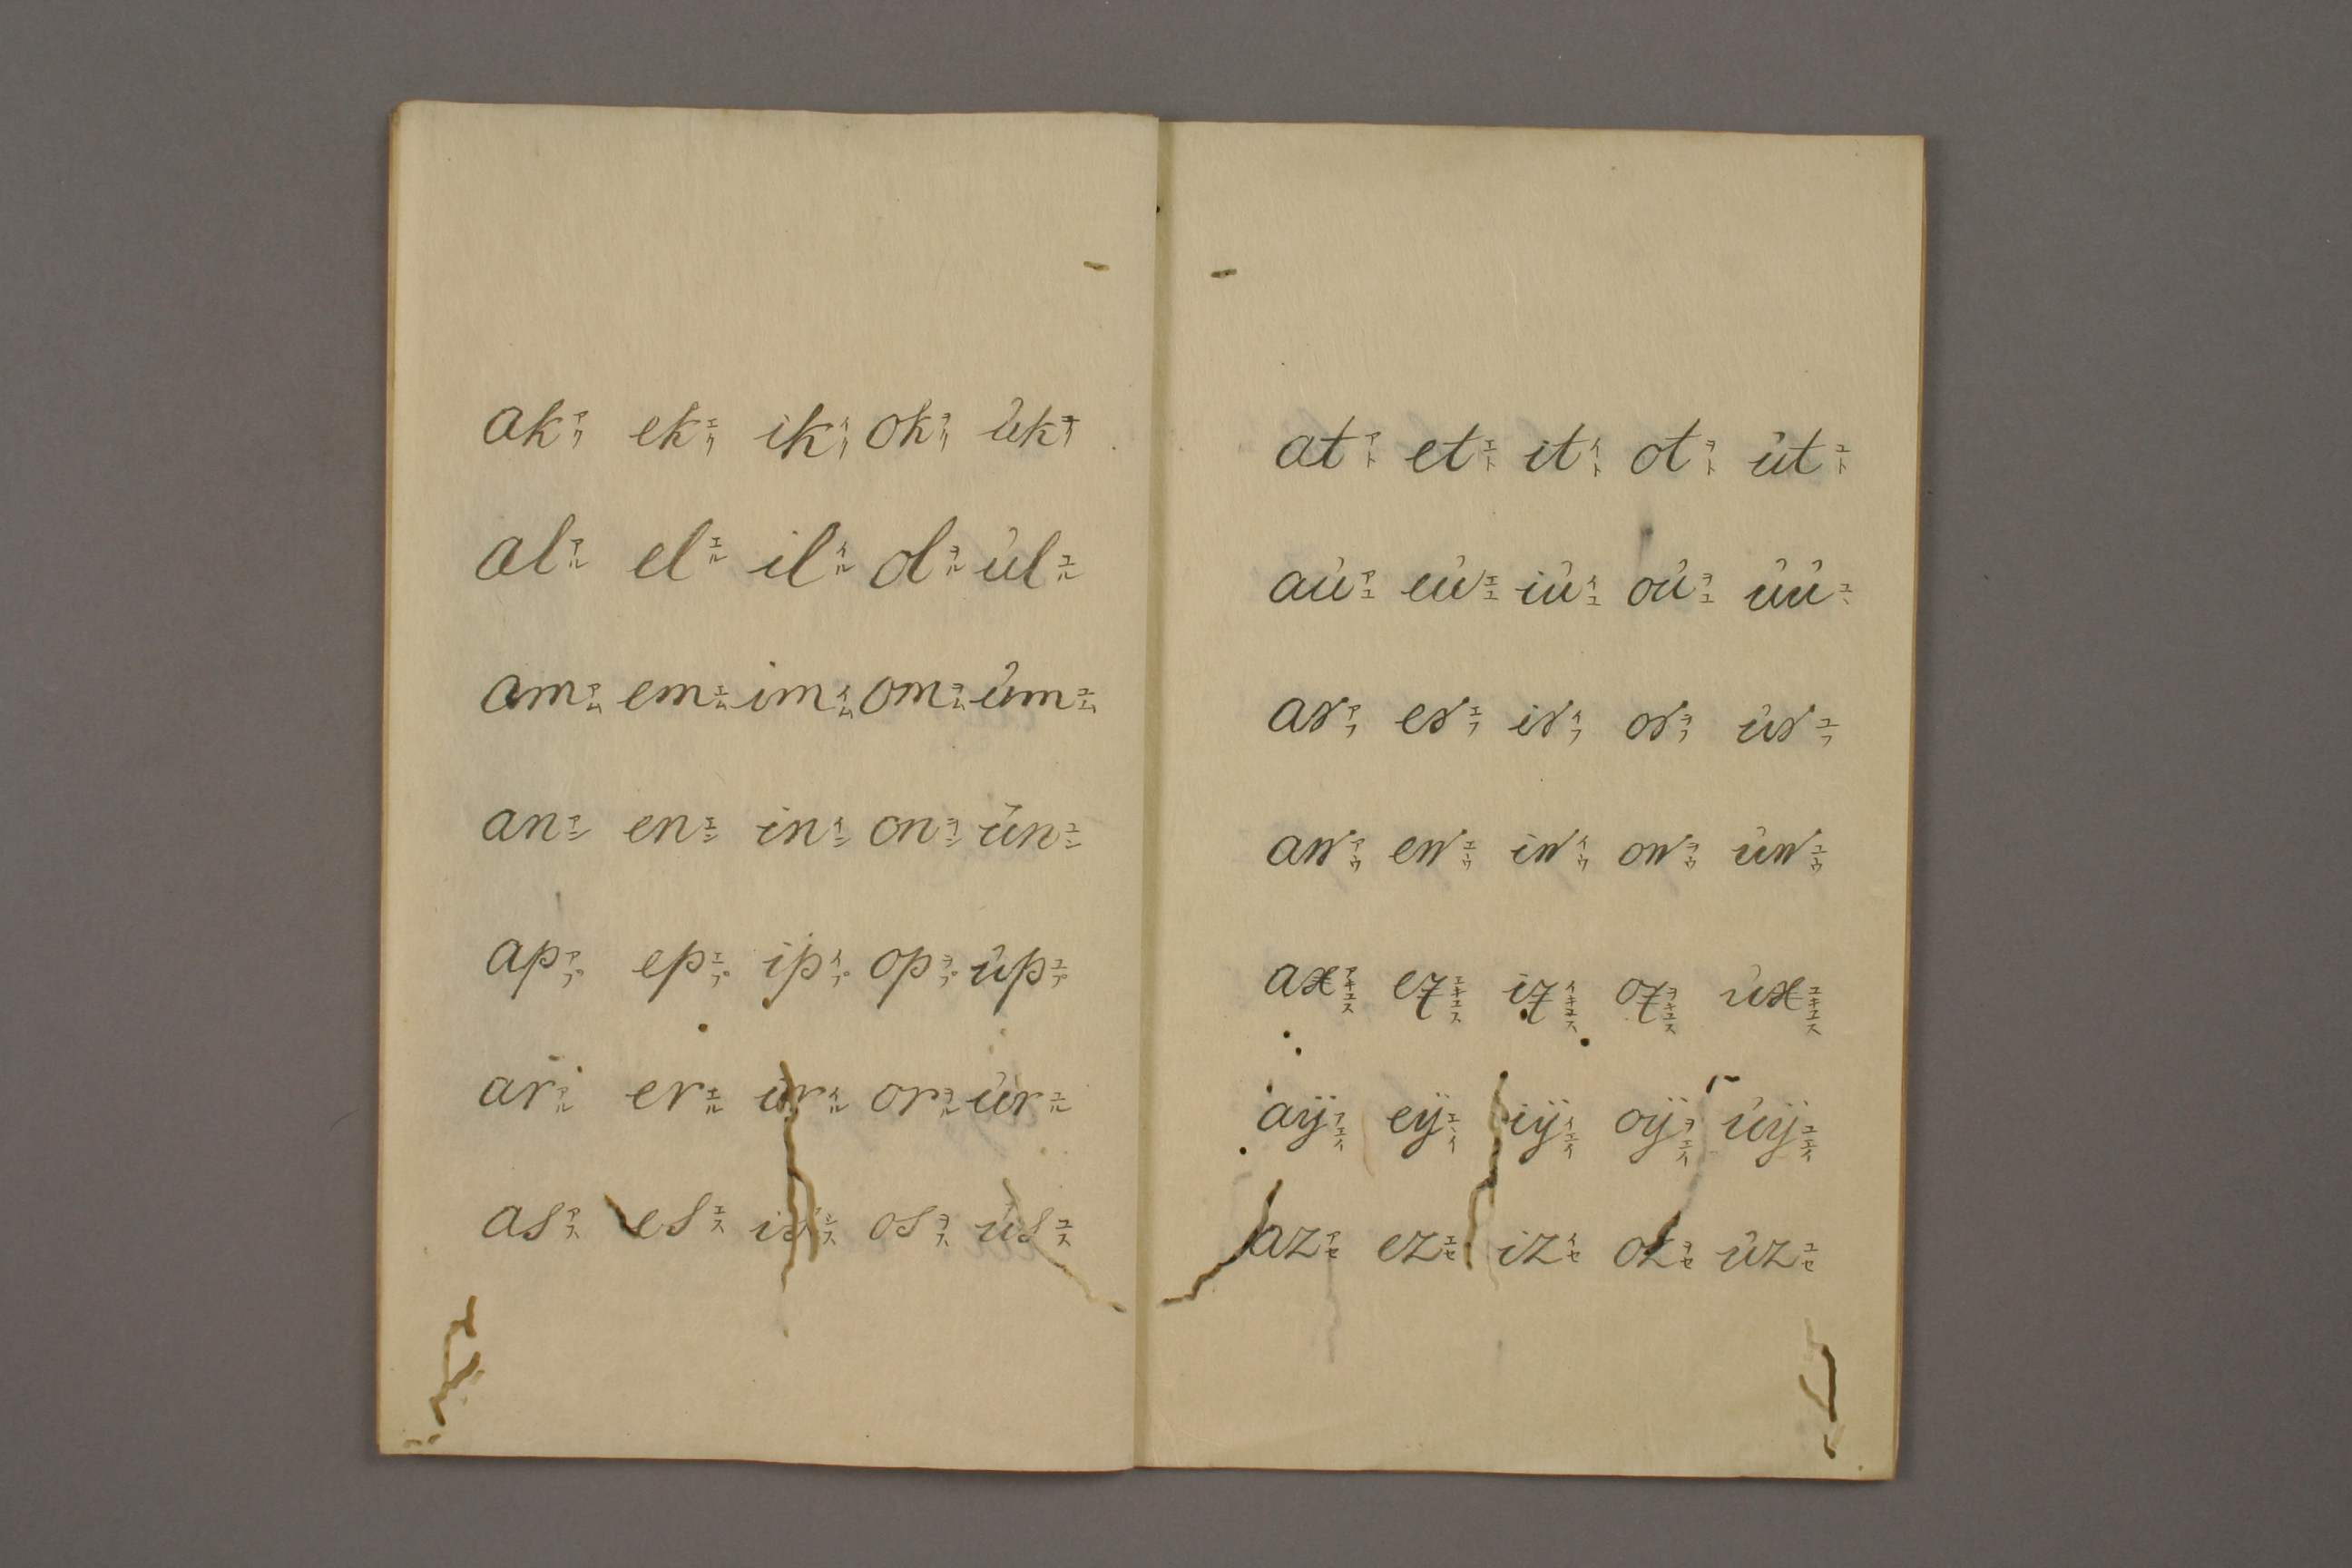 akアク ekエク ikイク okヲク ùkユク
alアル elエル ilイル olヲル ùlユル
amアム emエム imイム omヲム ùmユム
anアン enエン inイン onヲン ùnユン
apアプ epエプ ipイプ opヲプ ùpユプ
arアル erエル irイル orヲル ùrユル
asアス esエス isイス osヲス ùsユス
atアト etエト itイト otヲト ùtユト
aùアユ eùエユ iùイユ oùヲユ ùùユヽ
avアフ evエフ ivイフ ovヲフ ùvユフ
awアウ ewエウ iwイウ owヲウ ùwユウ
axアキユス exエキユス ixイキユス oxヲキユス ùxユキユス
aÿアエイ eÿエヽイ iÿイエイ oÿヲエイ ùÿユエイ
azアセ ezエセ izイセ ozヲセ ùzユセ